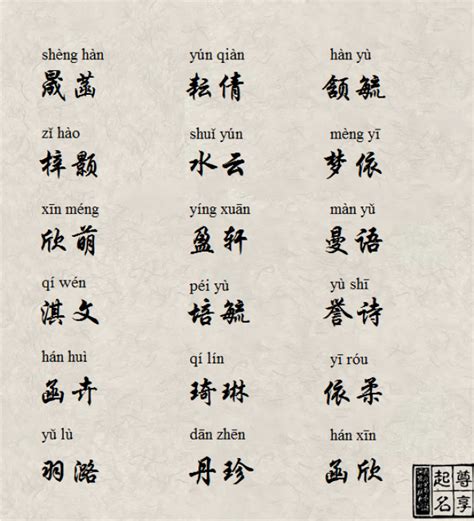 shèng hàn yún qiàn hàn yù
晟菡 耘倩 颔毓
zǐ hào shuǐ yún mèng yī
梓颢 水云 梦依
xīn méng yíng xuān màn yǔ
欣萌 盈轩 曼语
qí wén péi yù yù shī
淇文 培毓 誉诗
hán huì qí lín yī róu
函卉 琦琳 依柔
yǔ lù dān zhēn hán xīn
羽潞 丹珍 函欣
尊享
起名